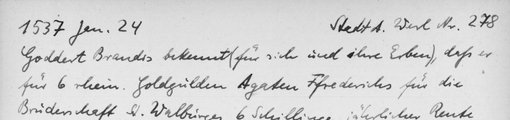 1537 Jan. 24 Stadt A. Werl Nr. 278
Goddert Brandis bekennt (für sich und ihre Erben), daß er
für 6 rhein. Goldgülden Agaten Ffrederichs für die
Bruderschaft St. Walburgis 6 Schillinge jährlicher Rente